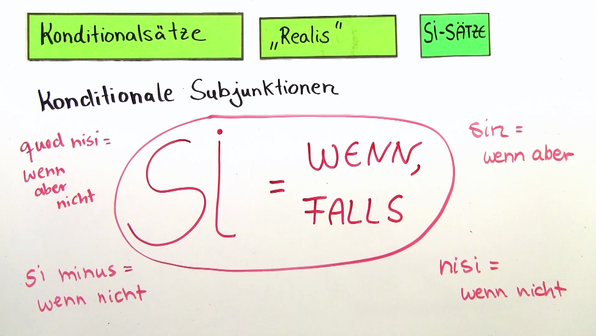 Konditionalsätze
„Realis"
Si-SÄTZE
Konditionale Subjunktionen
quod nisi =
wenn
aber
nicht
Si = WENN,
FALLS
sin =
wenn aber
si minus =
wenn nicht
nisi =
wenn nicht